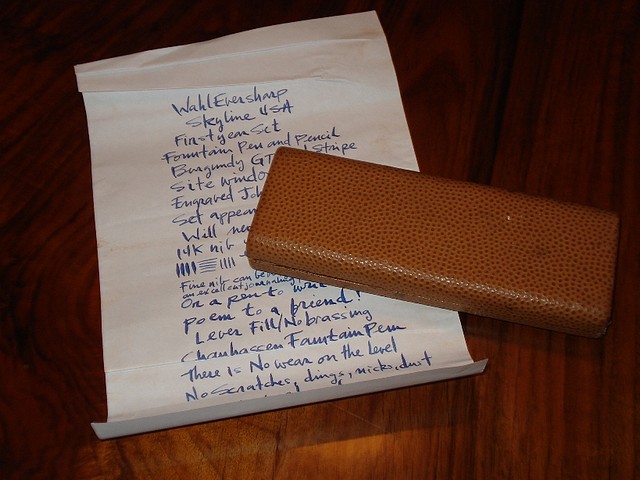 Wahl Eversharp
Skyline USA
First year Set
Fountain Pen and Pencil
Burgundy GT Stripe
Site windo
Engraved Joh
Set appear
Will
14K nib
Fine nib can be
an excellent journaling
Or a pen to write
Poem to a friend!
Lever Fill/No brassing
Chanhassen Fountain Pen
There Is No wear on the level
No Scratches, dings, nicks, dust